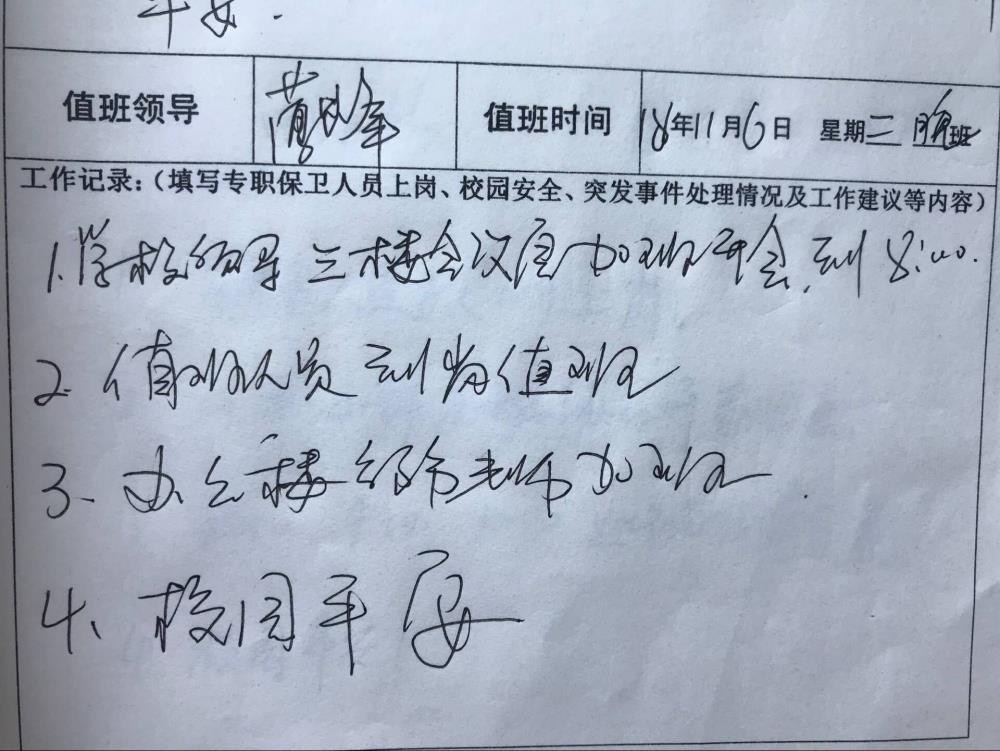 平安.
值班领导 值班时间 18年11月6日 星期二 晚班
工作记录:(填写专职保卫人员上岗、校园安全、突发事件处理情况及工作建议等内容)
1.学校领导三楼会议室加班开会,到8:00.
2.值班人员到岗值班
3、办公楼部分老师加班.
4、校园平安